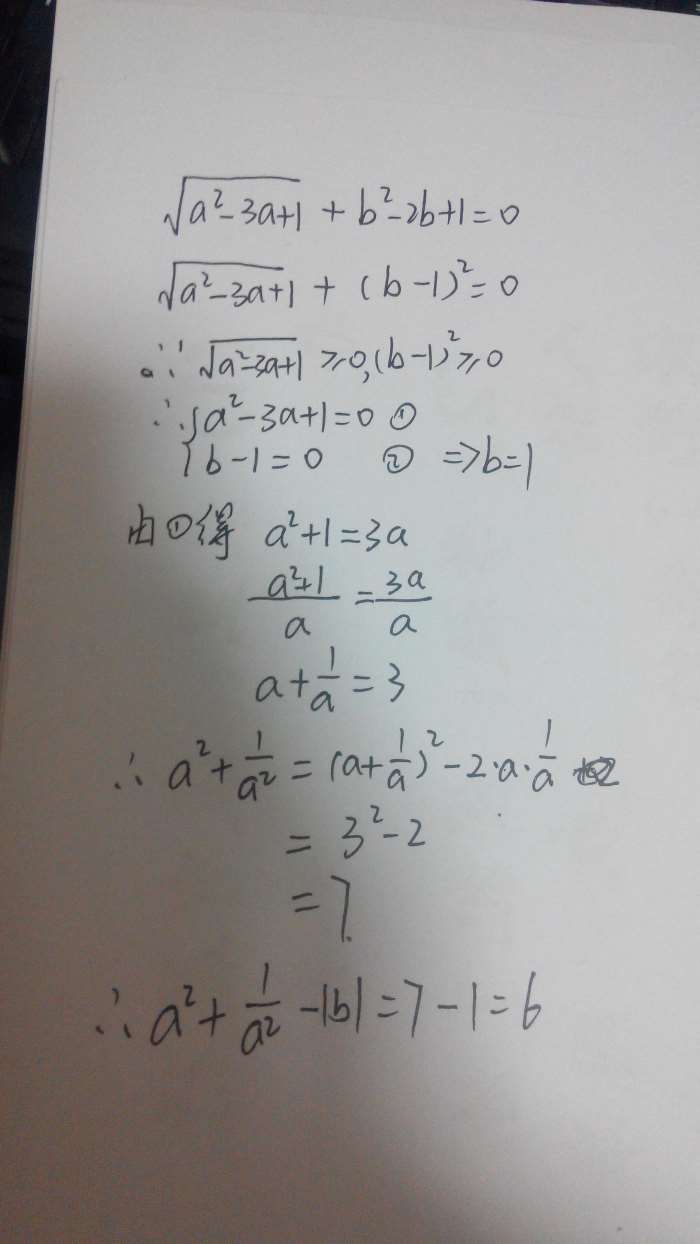 √(a²-3a+1) + b²-2b+1=0
√(a²-3a+1) + (b-1)²=0
∵ √(a²-3a+1) ≥0,(b-1)²≥0
∴{a²-3a+1=0 ①
b-1=0 ② =>b=1
由①得 a²+1=3a
(a²+1)/a = 3a/a
a+1/a=3
∴ a²+1/a² = (a+1/a)²-2·a·1/a
= 3²-2
=7.
∴a²+1/a²-|b|=7-1=6